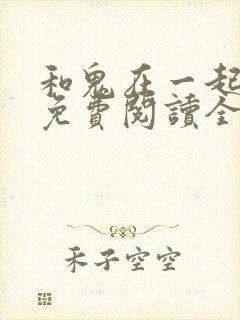 和鬼在一起
免費閱讀全
禾子空空